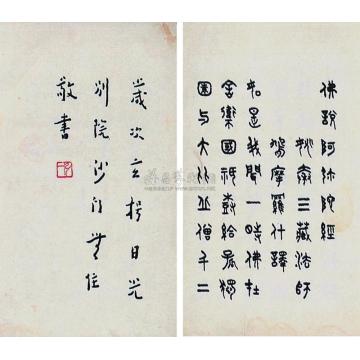 佛說阿弥陀經
姚秦三藏法師
鳩摩羅什譯
如是我聞一時佛在
舍衛國祇樹給孤獨
園与大比丘僧千二
歲次玄枵日光
別院沙門無住
敬書